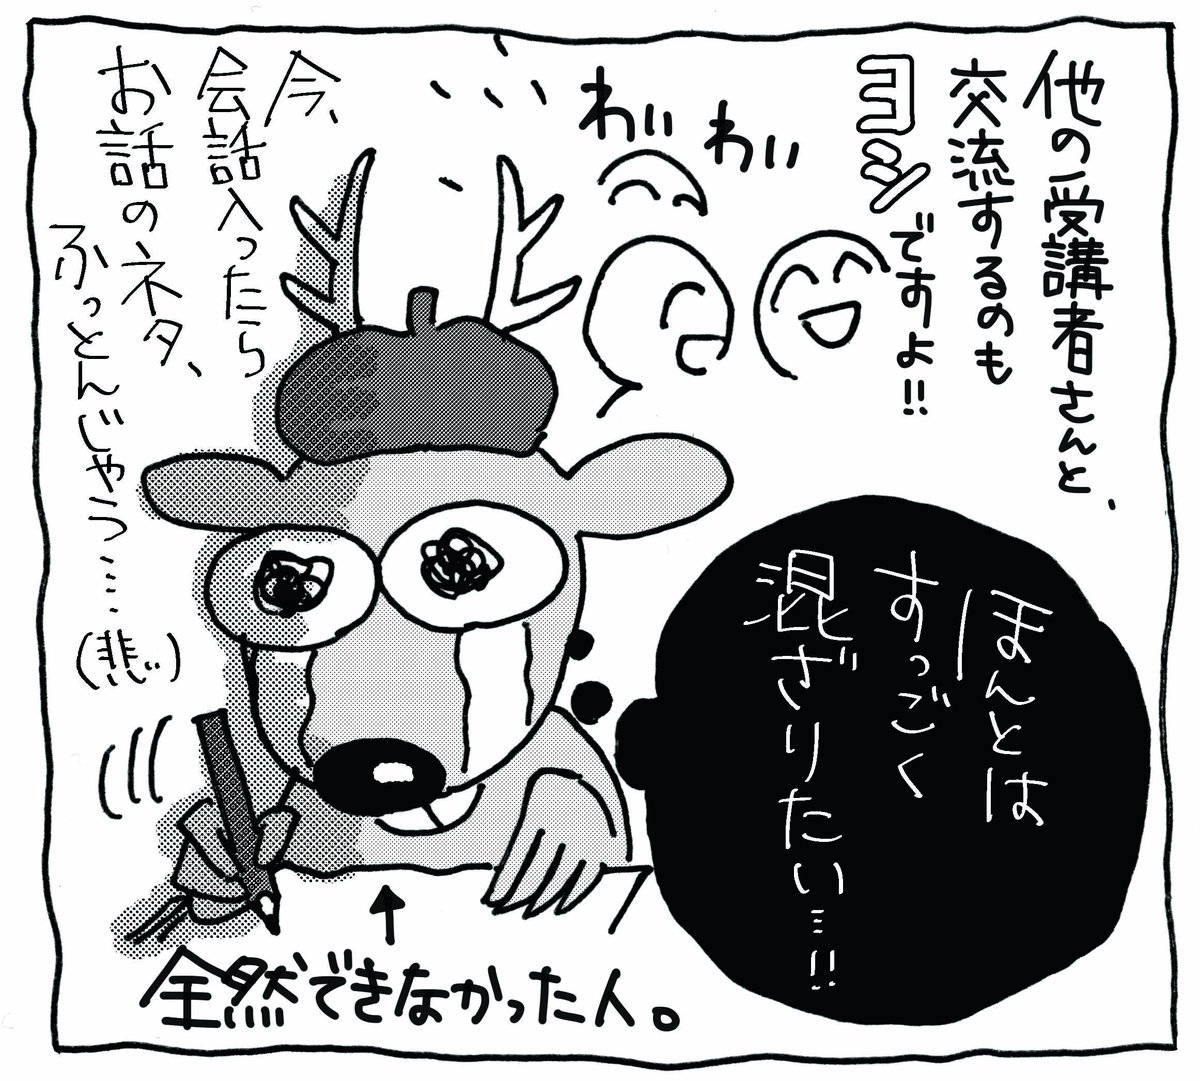 他の受講者さんと、
交流するのも
ヨシですよ!!
わい
わい
今、
会話入ったら
お話のネタ、
ふっとんじゃう….
(悲)
ほんとは
すっごく
混ざりたい…!!
↑
全然できなかった人。